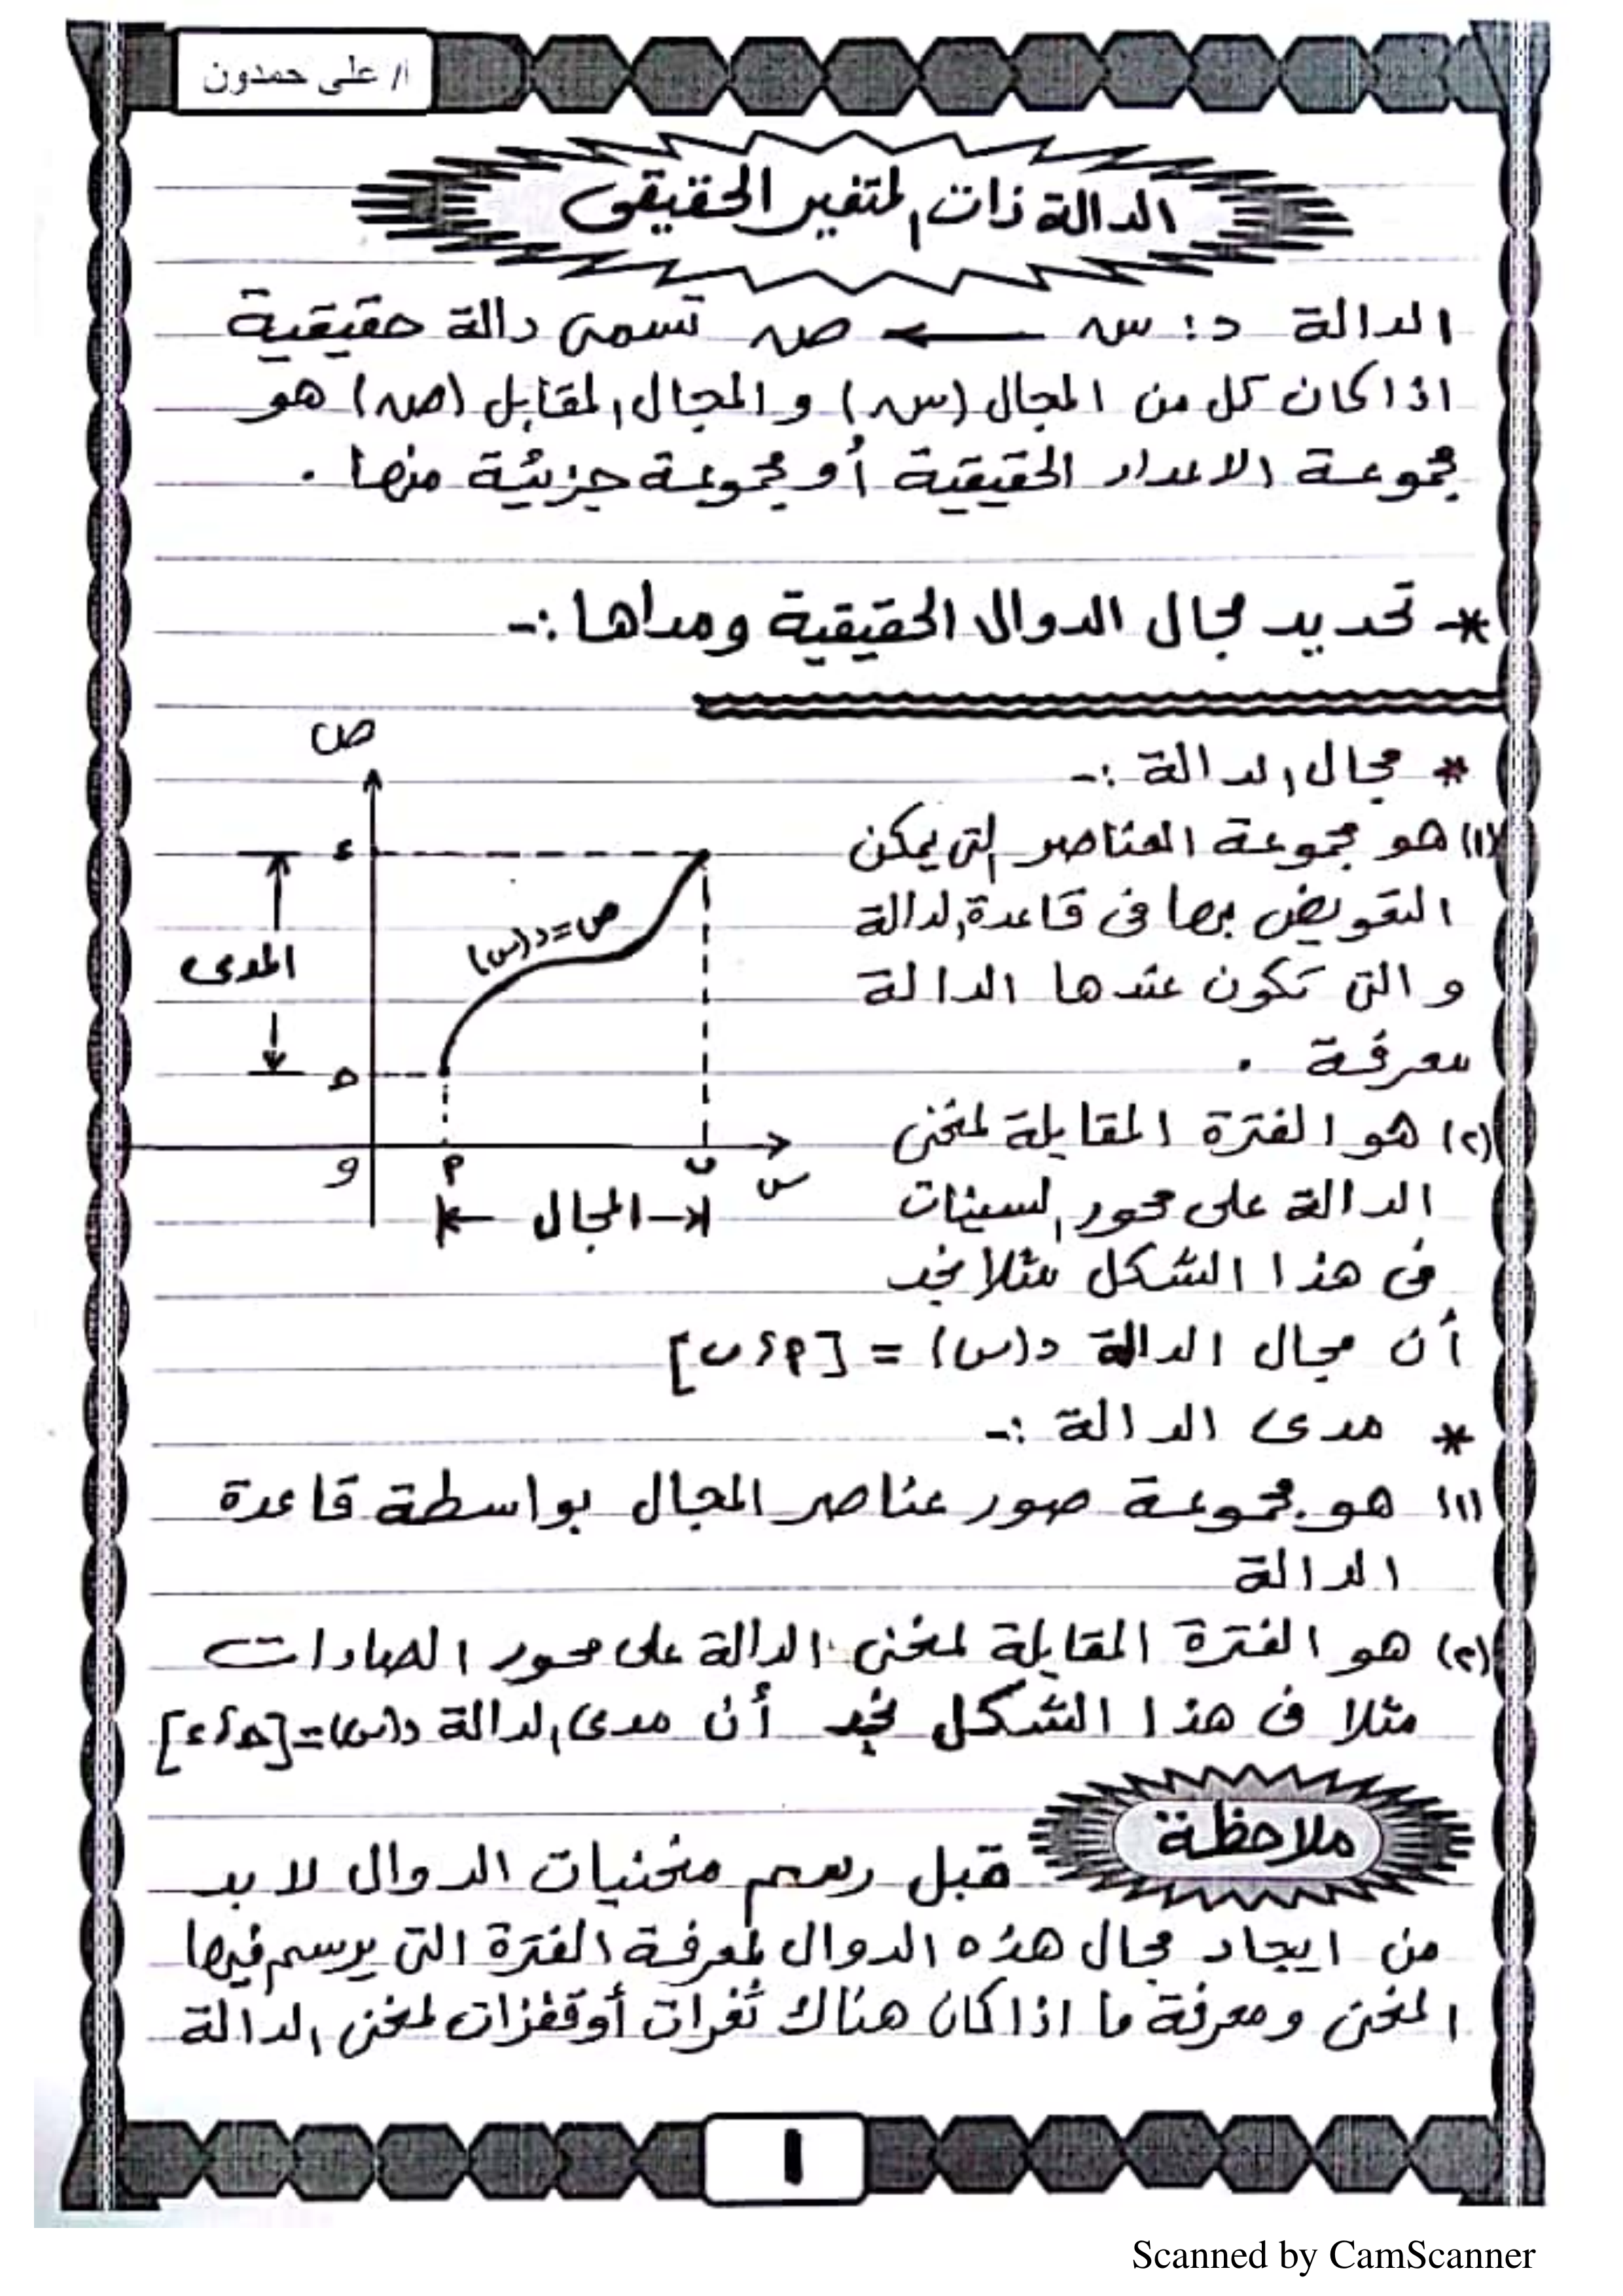 ا/ على حمدون
الدالة ذات المتغير الحقيقى
الدالة د: س ← ص تسمى دالة حقيقية
اذا كان كل من المجال (س) و المجال المقابل (ص) هو
مجموعة الاعداد الحقيقية أو مجموعة جزئية منها .
*- تحديد مجال الدوال الحقيقية ومداها :-
* مجال الدالة :-
(١) هو مجموعة العناصر التى يمكن
التعويض بها فى قاعدة الدالة
و التى تكون عندها الدالة
معرفة .
(٢) هو الفترة المقابلة لمنحنى
الدالة على محور السينات
فى هذا الشكل مثلا نجد
أن مجال الدالة د(س) = [م، ب]
ص
ء
ص=د(س)
المدى
ح
و
م
ب
س
المجال
* مدى الدالة :-
(١) هو مجموعة صور عناصر المجال بواسطة قاعدة
الدالة
(٢) هو الفترة المقابلة لمنحنى الدالة على محور الصادات
مثلا فى هذا الشكل نجد أن مدى الدالة د(س)=[ح، ء]
ملاحظة
قبل رسم منحنيات الدوال لا بد
من ايجاد مجال هذه الدوال لمعرفة الفترة التى يرسم فيها
المنحنى ومعرفة ما اذا كان هناك ثغرات أو قفزات لمنحنى الدالة
١
Scanned by CamScanner